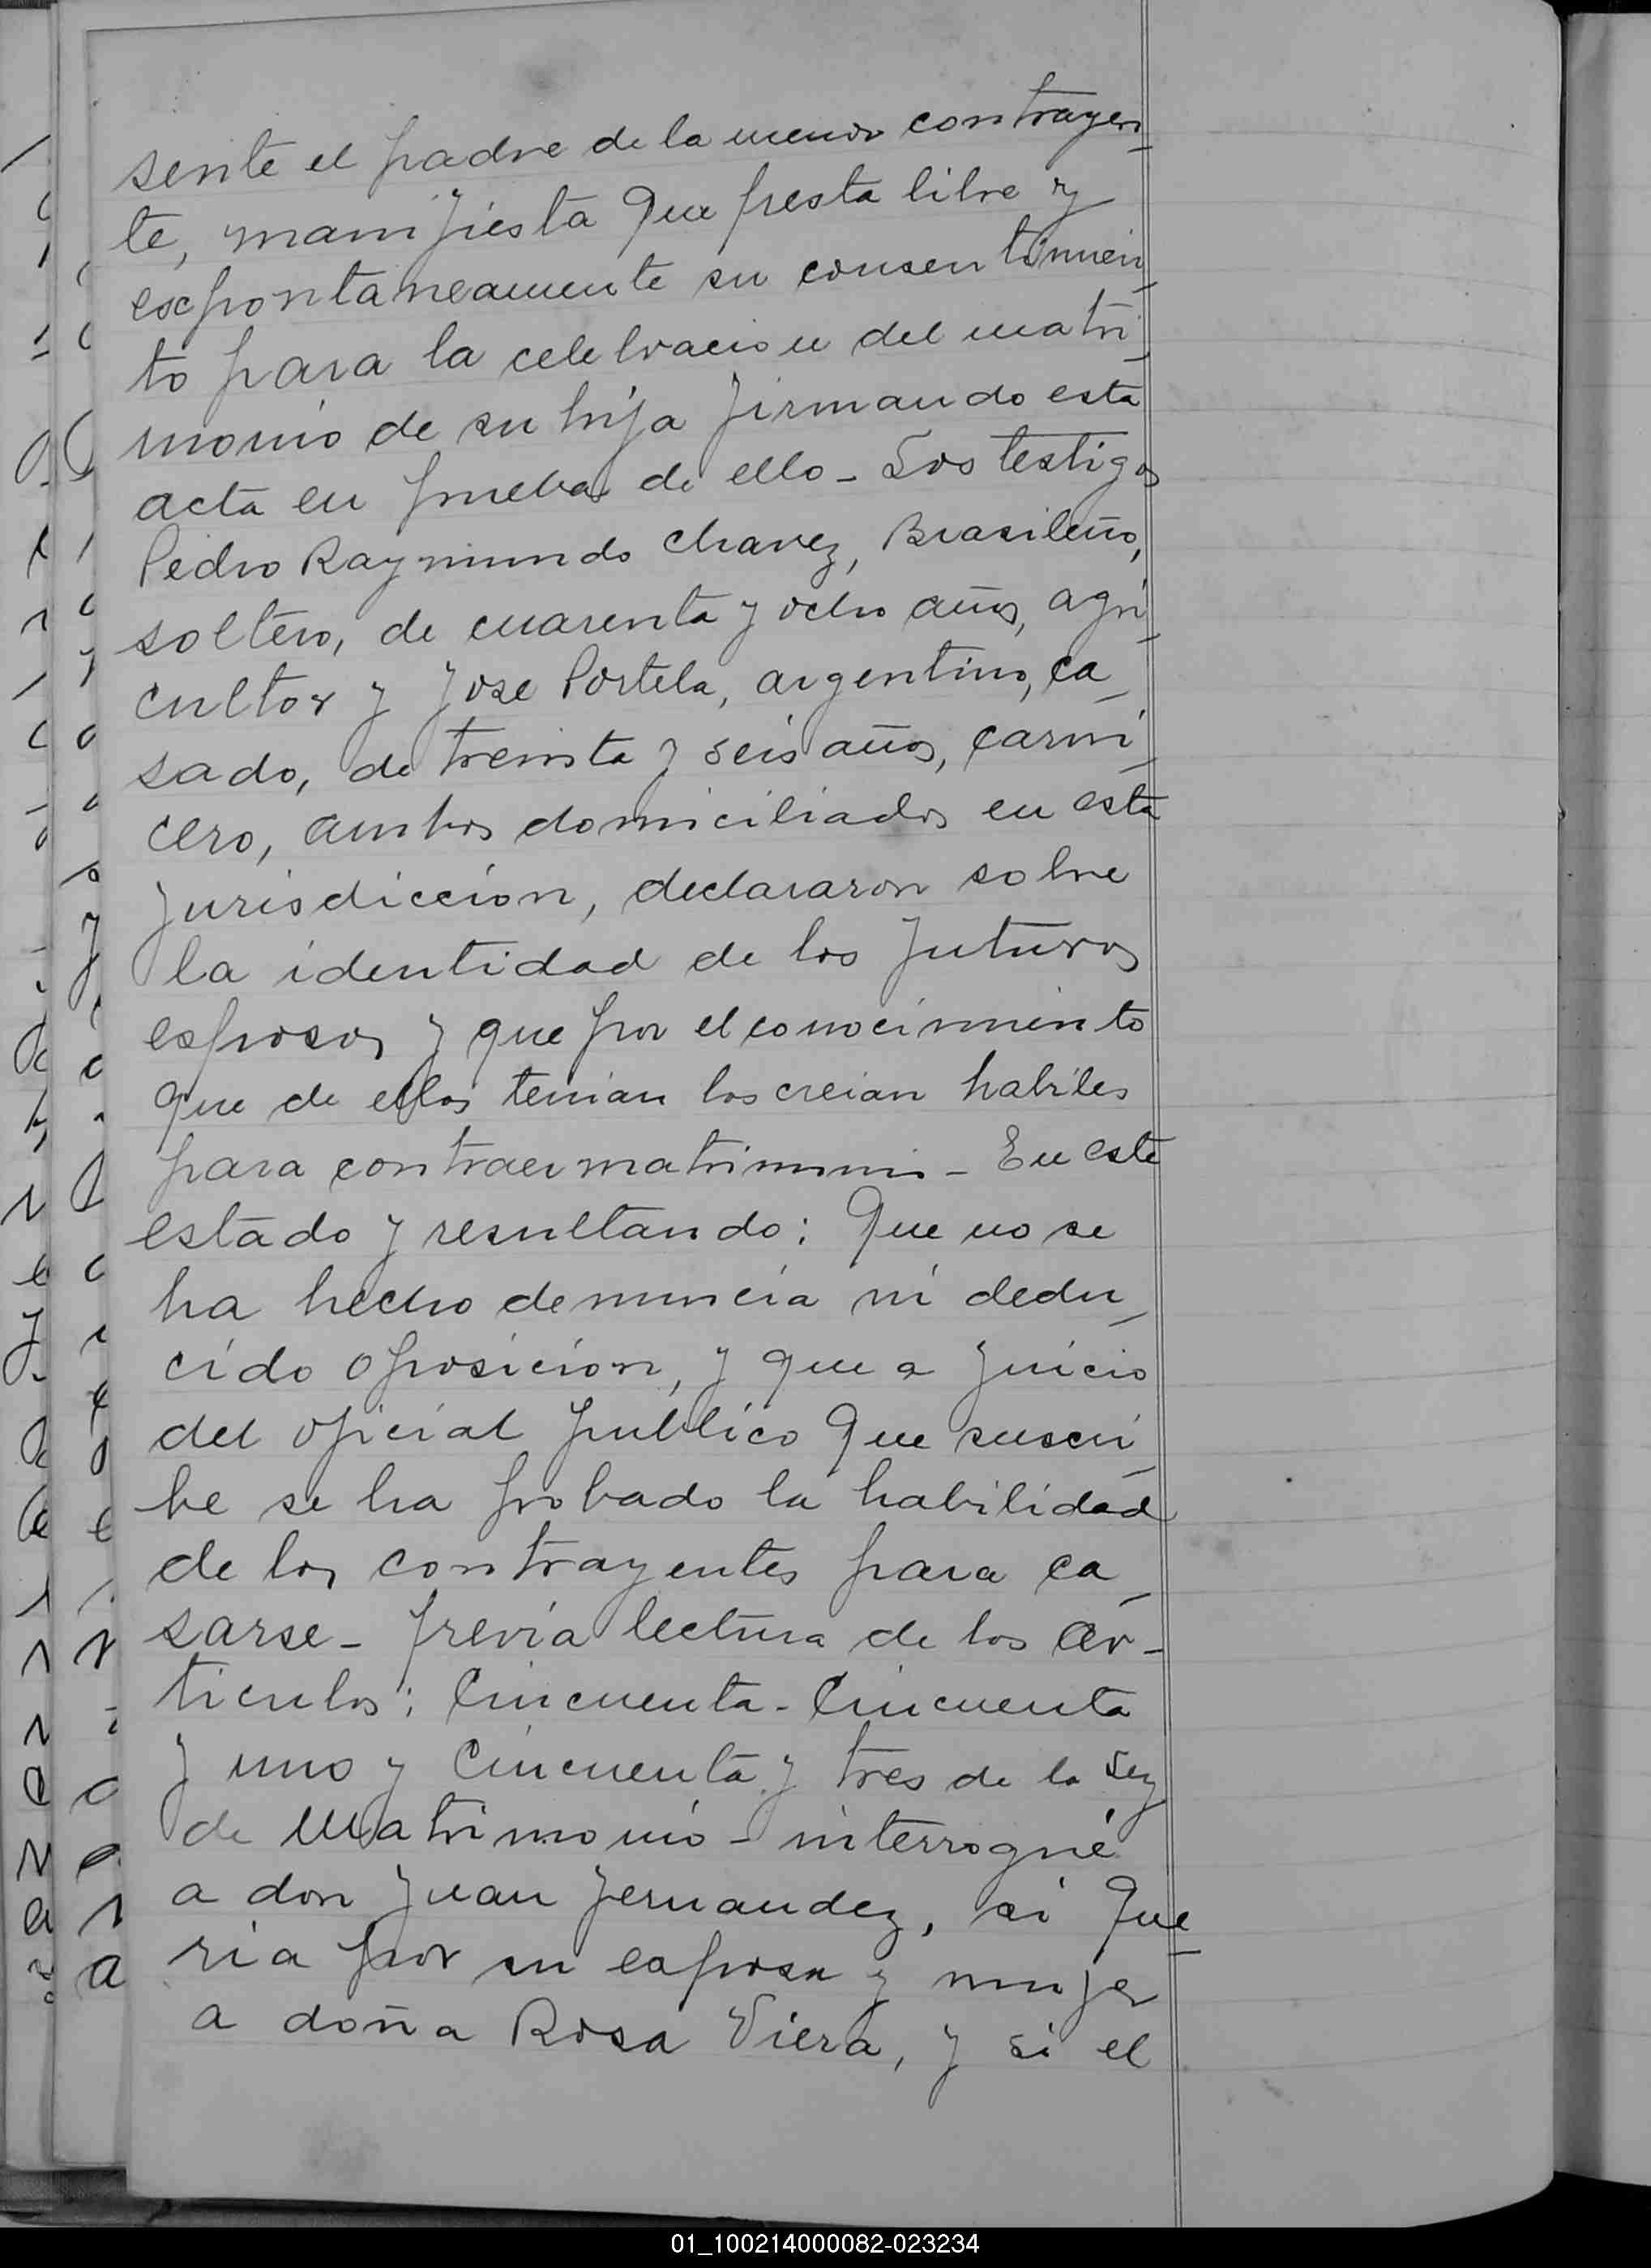 sente el padre de la menor contrayen_
te, manifiesta que presta libre y
expontaneamente su consentimien_
to para la celebracion del matri_
monio de su hija firmando esta
acta en prueba de ello - Los testigos
Pedro Raymundo Chavez, Brasileño,
soltero, de cuarenta y ocho años, agri_
cultor y Jose Portela, argentino, ca_
sado, de treinta y seis años, carni_
cero, ambos domiciliados en esta
jurisdiccion, declararon sobre
la identidad de los futuros
esposos y que por el conocimiento
que de ellos tenian los creian habiles
para contraer matrimonio - En este
estado y resultando: Que no se
ha hecho denuncia ni dedu_
cido oposicion, y que a juicio
del oficial publico que suscri_
be se ha probado la habilidad
de los contrayentes para ca_
sarse - previa lectura de los ar-
ticulos: Cincuenta - Cincuenta
y uno y Cincuenta y tres de la Ley
de Matrimonio - interrogué
a don Juan Fernandez, si que_
ria por su esposa y mujer
a doña Rosa Viera, y si el
01_100214000082-023234